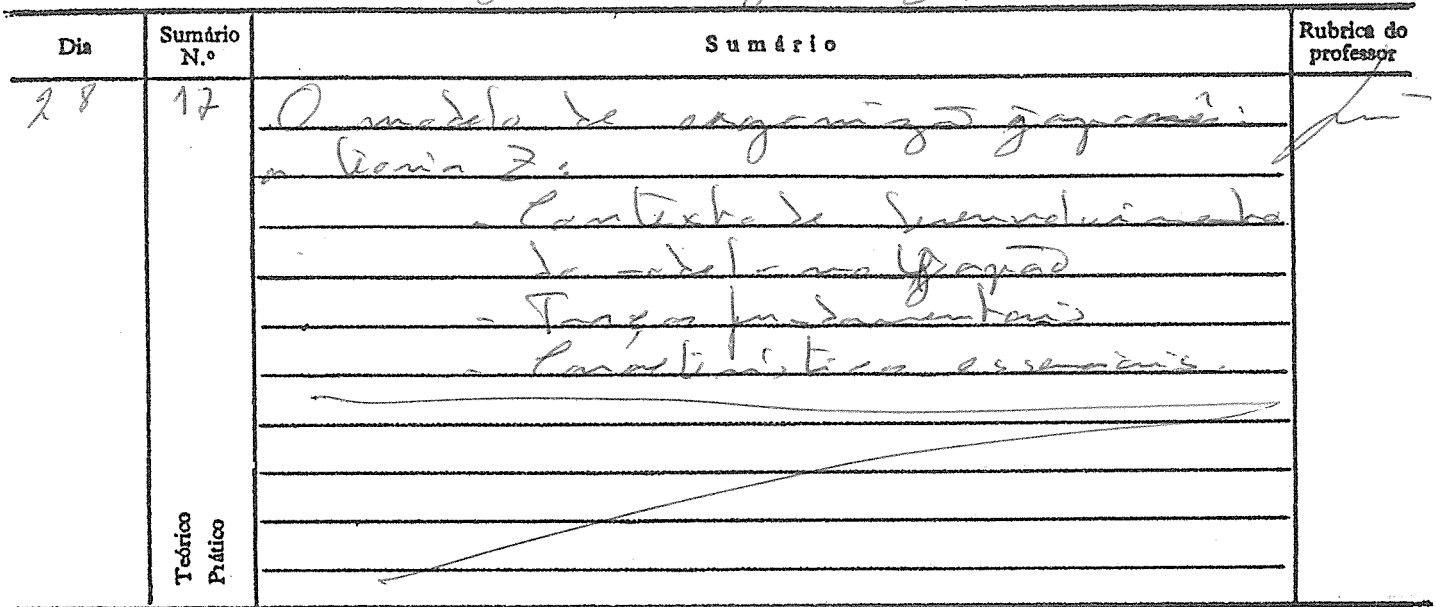 Dia
Sumário N.º
Sumário
Rubrica do professor
28
17
O modelo de organização japonês:
a teoria Z:
- Contexto de desenvolvimento
do modelo no Japão
- Traços fundamentais
- Características essenciais.
Teórico
Prático